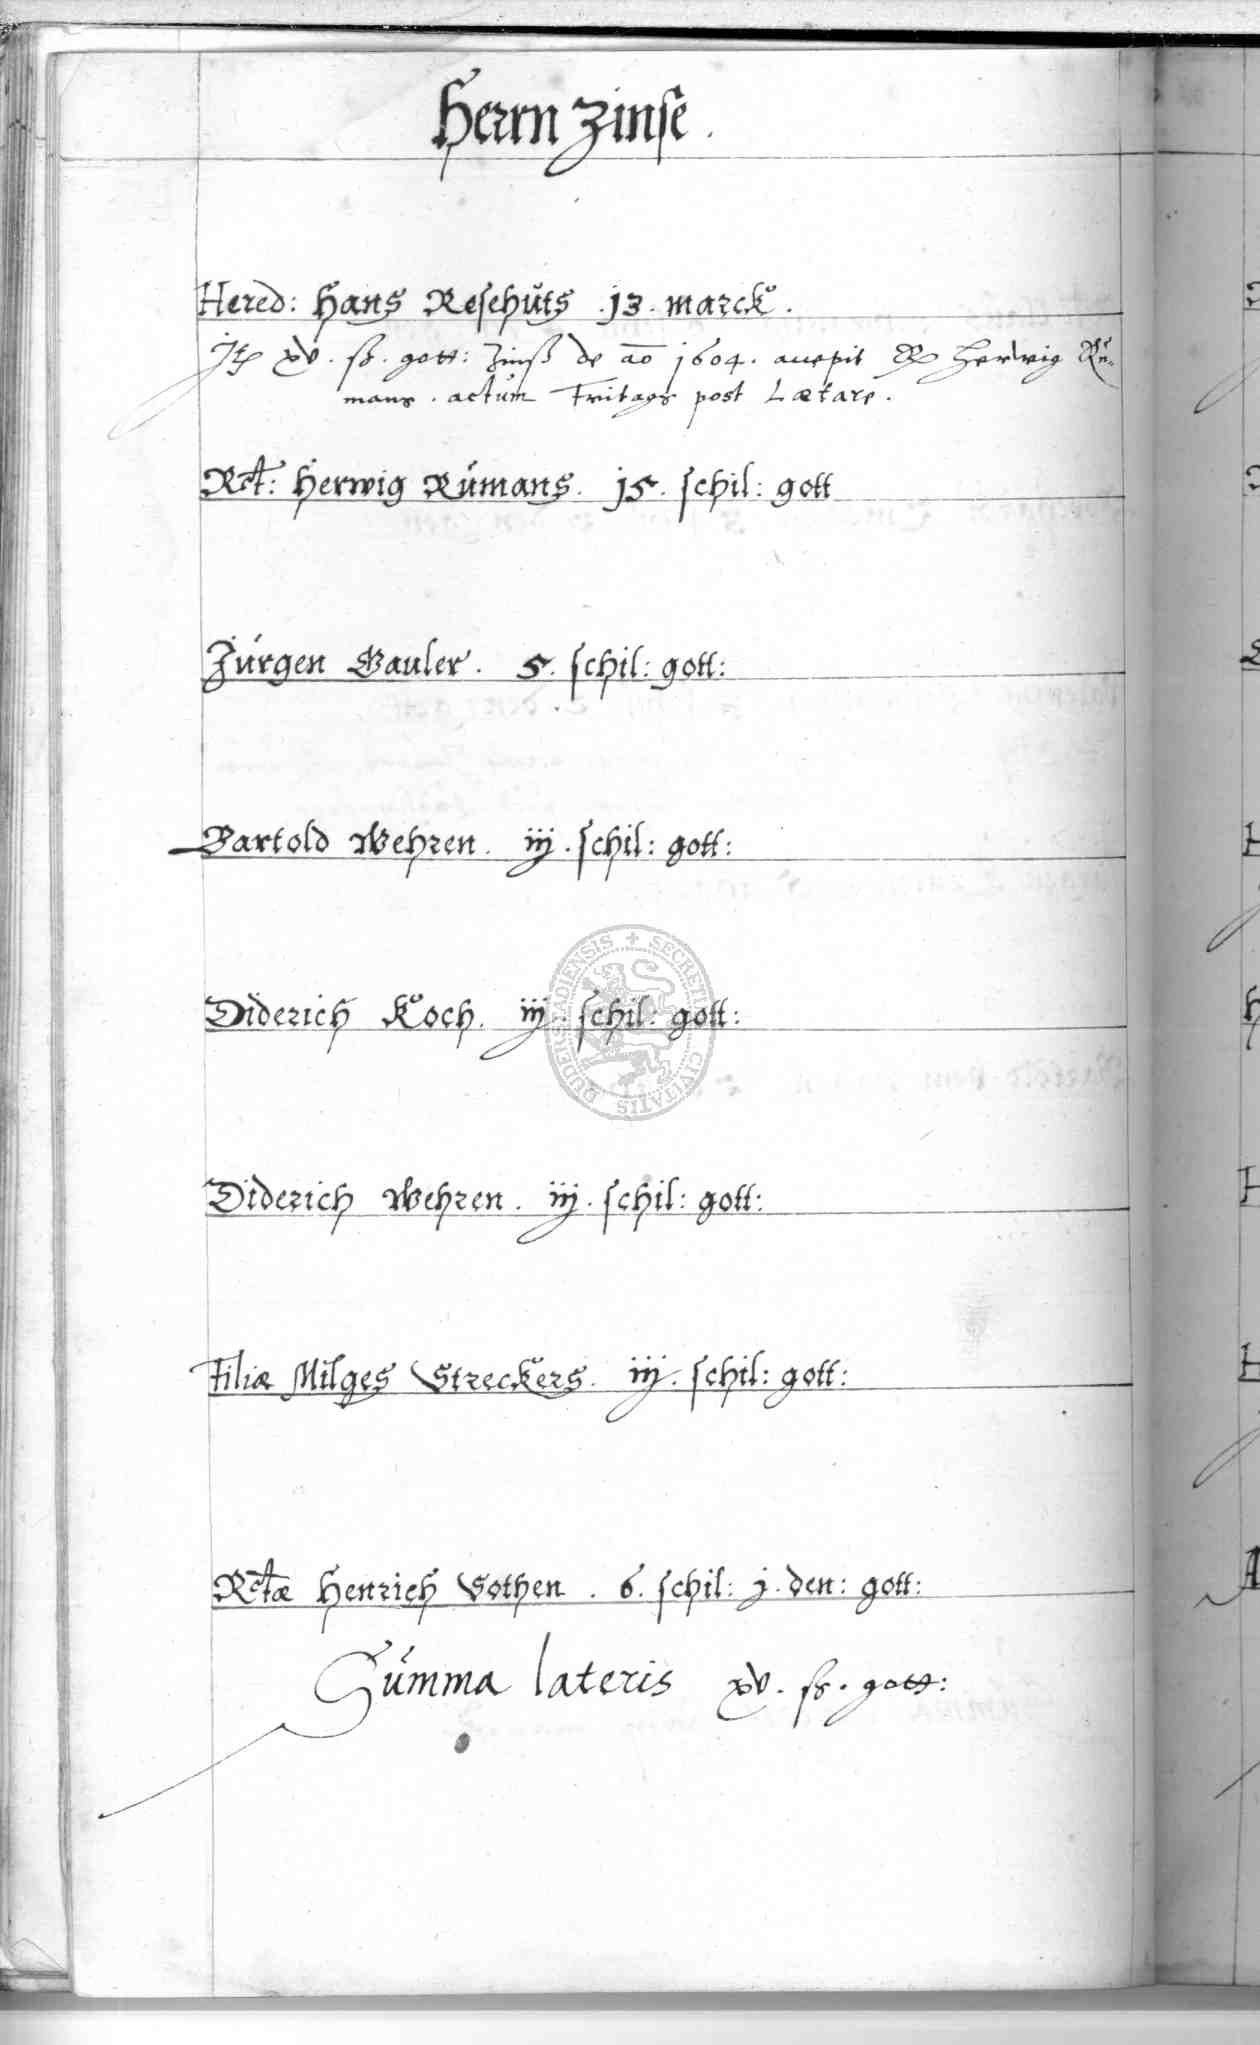 Herrn Zinse.
Hered: Hans Reschüts .13. marck.
Jt xv. ß. gott: Zinß de ao 1604. accepit R Herwig Rü-
mans. actum Fritags post Lætare.
Rct: Herwig Rümans. 15. schil: gott
Jürgen Gauler. 5. schil: gott:
Bartold Wehren. iij. schil: gott:
Diderich Koch. iij. schil: gott:
Diderich Wehren. iij. schil: gott:
Filiæ Milges Streckers. iij. schil: gott:
Rctæ Henrich Vothen. 6. schil: j. den: gott:
Summa lateris xv. ß. gott:
SECRETI CIVITATIS DUDERSTADIENSIS